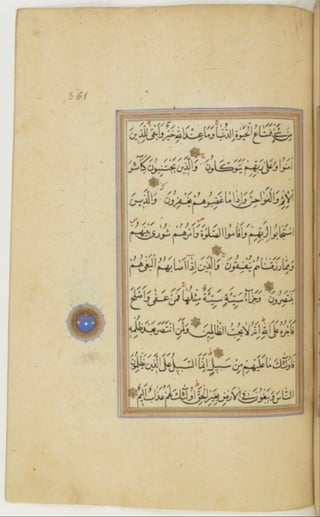 361
مِن شَيْءٍ فَمَتَاعُ الْحَيٰوةِ الدُّنْيَا وَمَا عِنْدَ اللَّهِ خَيْرٌ وَأَبْقَى لِلَّذِينَ
اٰمَنُوا وَعَلَى رَبِّهِمْ يَتَوَكَّلُونَ وَالَّذِينَ يَجْتَنِبُونَ كَبَآئِرَ
الْإِثْمِ وَالْفَوَاحِشَ وَإِذَا مَا غَضِبُوا هُمْ يَغْفِرُونَ وَالَّذِينَ
اسْتَجَابُوا لِرَبِّهِمْ وَأَقَامُوا الصَّلٰوةَ وَأَمْرُهُمْ شُورَى بَيْنَهُمْ
وَمِمَّا رَزَقْنَاهُمْ يُنْفِقُونَ وَالَّذِينَ إِذَا أَصَابَهُمُ الْبَغْيُ هُمْ
يَنْتَصِرُونَ وَجَزَآءُ سَيِّئَةٍ سَيِّئَةٌ مِثْلُهَا فَمَنْ عَفَى وَأَصْلَحَ
فَأَجْرُهُ عَلَى اللَّهِ إِنَّهُ لَا يُحِبُّ الظَّالِمِينَ وَلَمَنِ انْتَصَرَ بَعْدَ ظُلْمِهِ
فَأُولَئِكَ مَا عَلَيْهِمْ مِنْ سَبِيلٍ إِنَّمَا السَّبِيلُ عَلَى الَّذِينَ يَظْلِمُونَ
النَّاسَ وَيَبْغُونَ فِي الْأَرْضِ بِغَيْرِ الْحَقِّ أُولَئِكَ لَهُمْ عَذَابٌ أَلِيمٌ